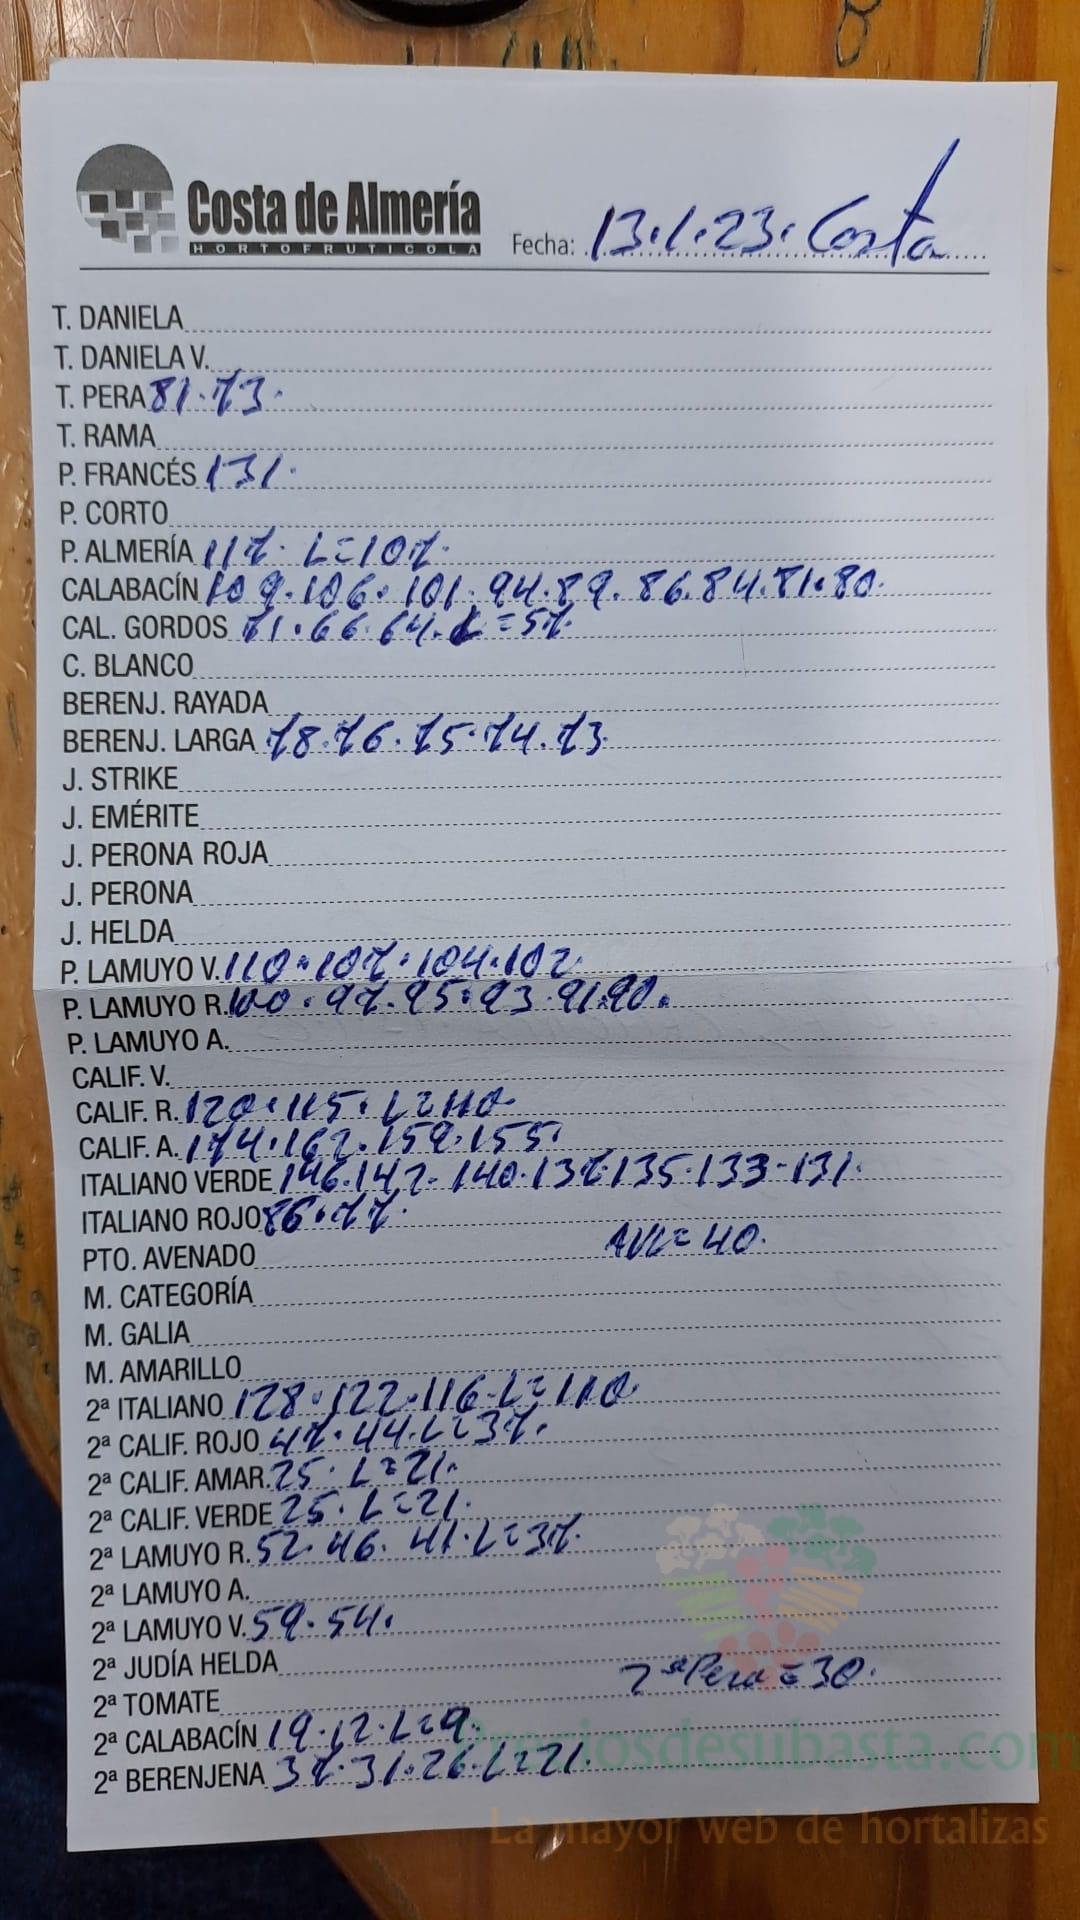 Costa de Almería
HORTOFRUTICOLA
Fecha: 13.1.23. Costa
T. DANIELA
T. DANIELA V.
T. PERA 81.73.
T. RAMA
P. FRANCÉS 131.
P. CORTO
P. ALMERÍA 117. L=107.
CALABACÍN 109.106.101.94.89.86.84.81.80.
CAL. GORDOS 71.66.64.L=57.
C. BLANCO
BERENJ. RAYADA
BERENJ. LARGA 78.76.75.74.73.
J. STRIKE
J. EMÉRITE
J. PERONA ROJA
J. PERONA
J. HELDA
P. LAMUYO V. 110.107.104.102.
P. LAMUYO R. 100.97.95.93.91.90.
P. LAMUYO A.
CALIF. V.
CALIF. R. 120.115.L=110.
CALIF. A. 174.162.159.155.
ITALIANO VERDE 146.142.140.137.135.133-131.
ITALIANO ROJO 86.77.
PTO. AVENADO AVE=40.
M. CATEGORÍA
M. GALIA
M. AMARILLO
2ª ITALIANO 128.122.116.L=110.
2ª CALIF. ROJO 47.44.L=37.
2ª CALIF. AMAR. 25.L=21.
2ª CALIF. VERDE 25.L=21.
2ª LAMUYO R. 52.46.41.L=37.
2ª LAMUYO A.
2ª LAMUYO V. 59.54.
2ª JUDÍA HELDA
2ª TOMATE 2ª Pera=30.
2ª CALABACÍN 19.12.L=9.
2ª BERENJENA 37.31.26.L=21.
Preciosdesubasta.com
La mayor web de hortalizas